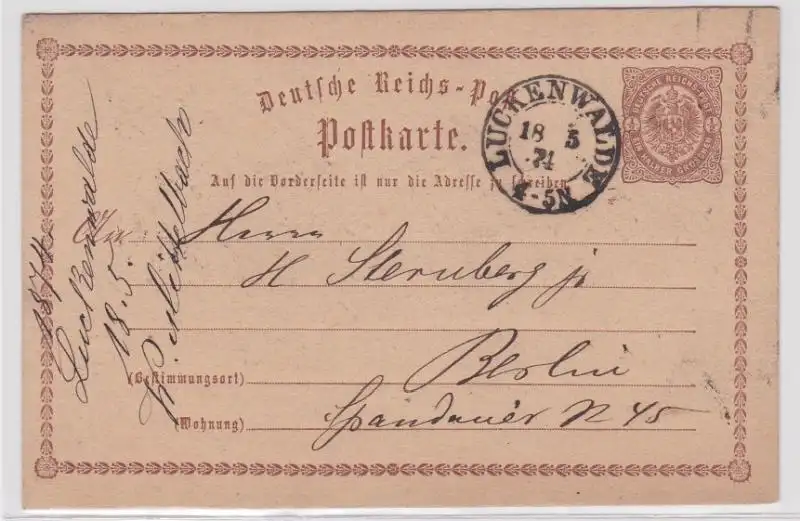 Deutsche Reichs-Po
Postkarte.
Auf die Vorderseite ist nur die Adresse zu schreiben.
DEUTSCHE REICHS-POST
EIN HALBER GROSCHEN
LUCKENWALDE
18 5
74
4-5N
An Herrn
H Sternberg jr
Berlin
(Bestimmungsort)
Spandauer N 45
(Wohnung)
1874
Luckenwalde
18.5.